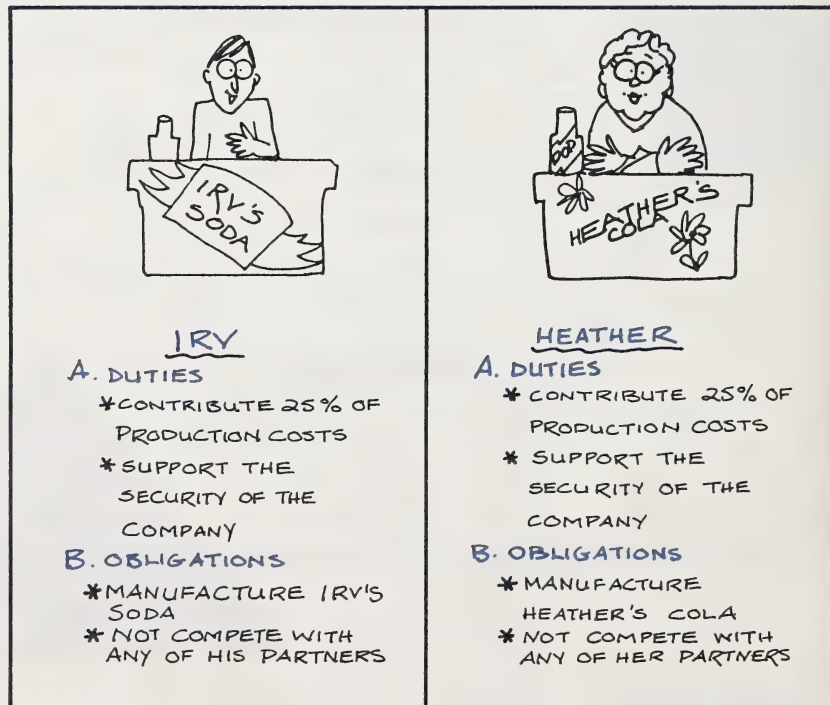 IRV'S
SODA
IRV
A. DUTIES
* CONTRIBUTE 25% OF
PRODUCTION COSTS
* SUPPORT THE
SECURITY OF THE
COMPANY
B. OBLIGATIONS
* MANUFACTURE IRV'S
SODA
* NOT COMPETE WITH
ANY OF HIS PARTNERS
POP
HEATHER'S
COLA
HEATHER
A. DUTIES
* CONTRIBUTE 25% OF
PRODUCTION COSTS
* SUPPORT THE
SECURITY OF THE
COMPANY
B. OBLIGATIONS
* MANUFACTURE
HEATHER'S COLA
* NOT COMPETE WITH
ANY OF HER PARTNERS